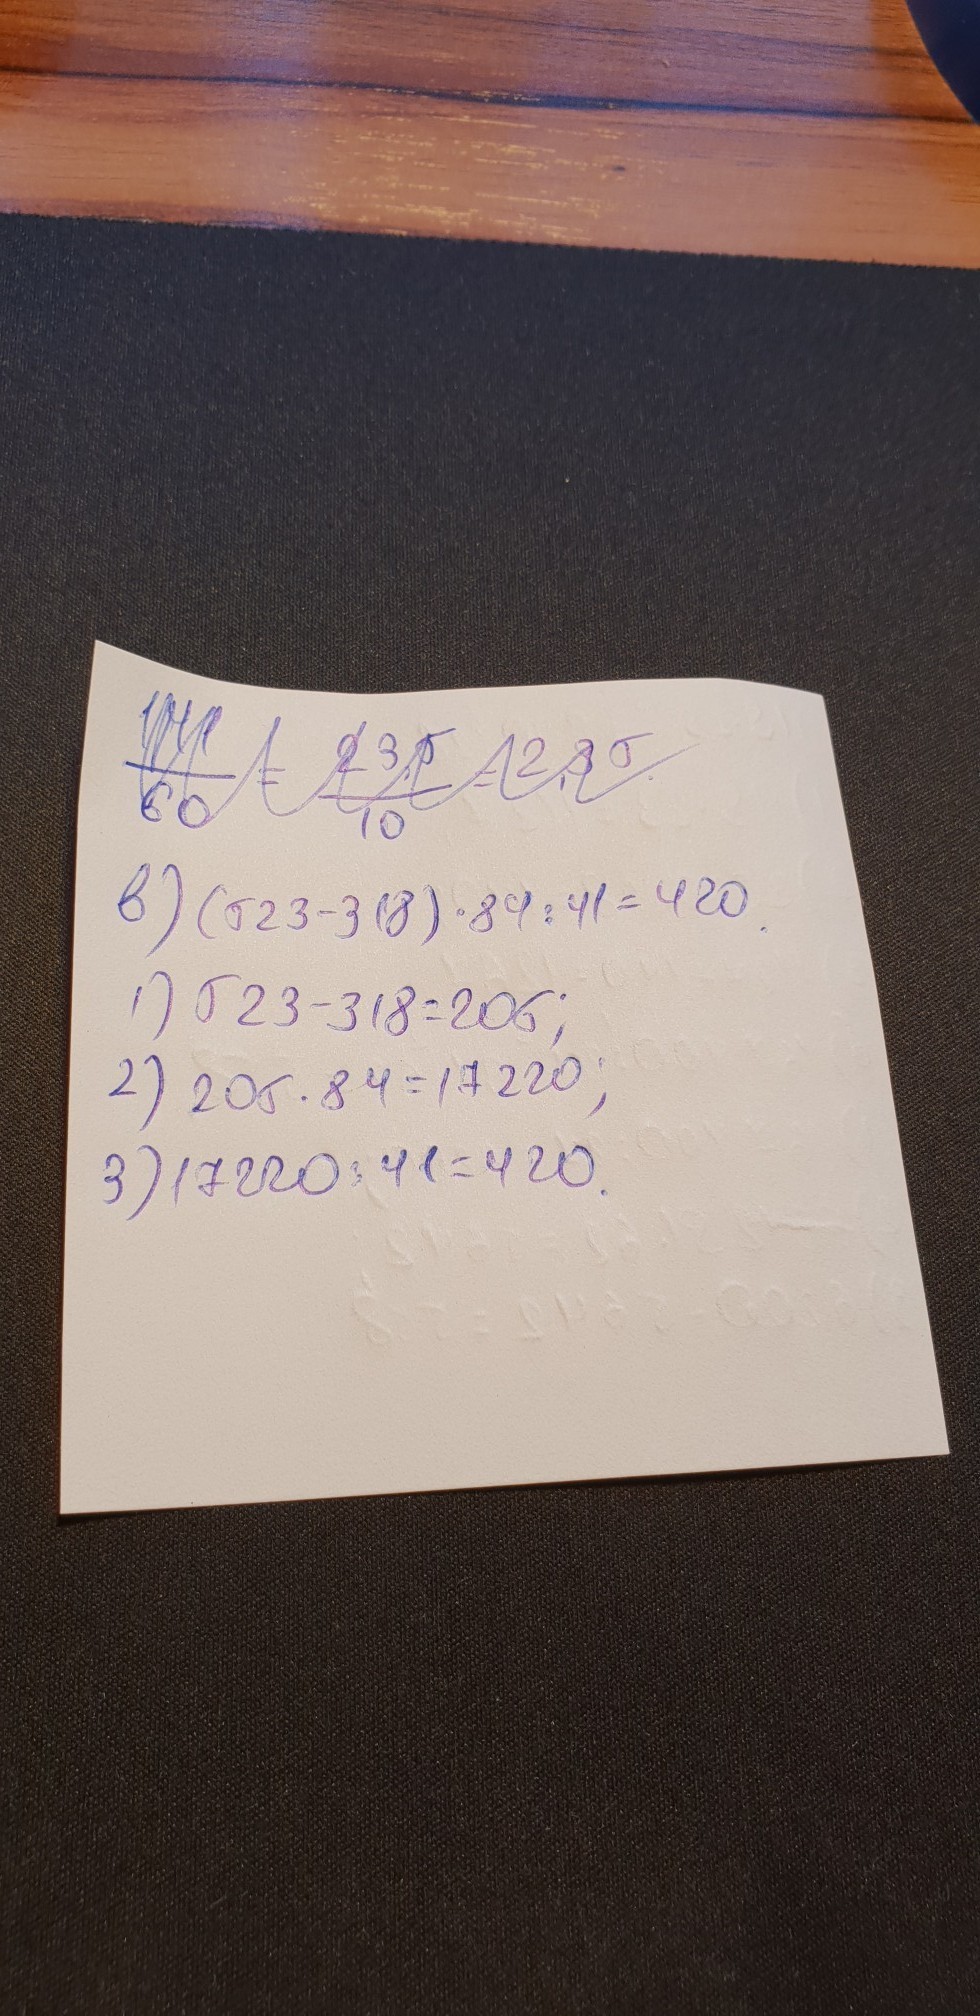 в) (523-318)·84:41=420.
1) 523-318=205;
2) 205·84=17220;
3) 17220:41=420.